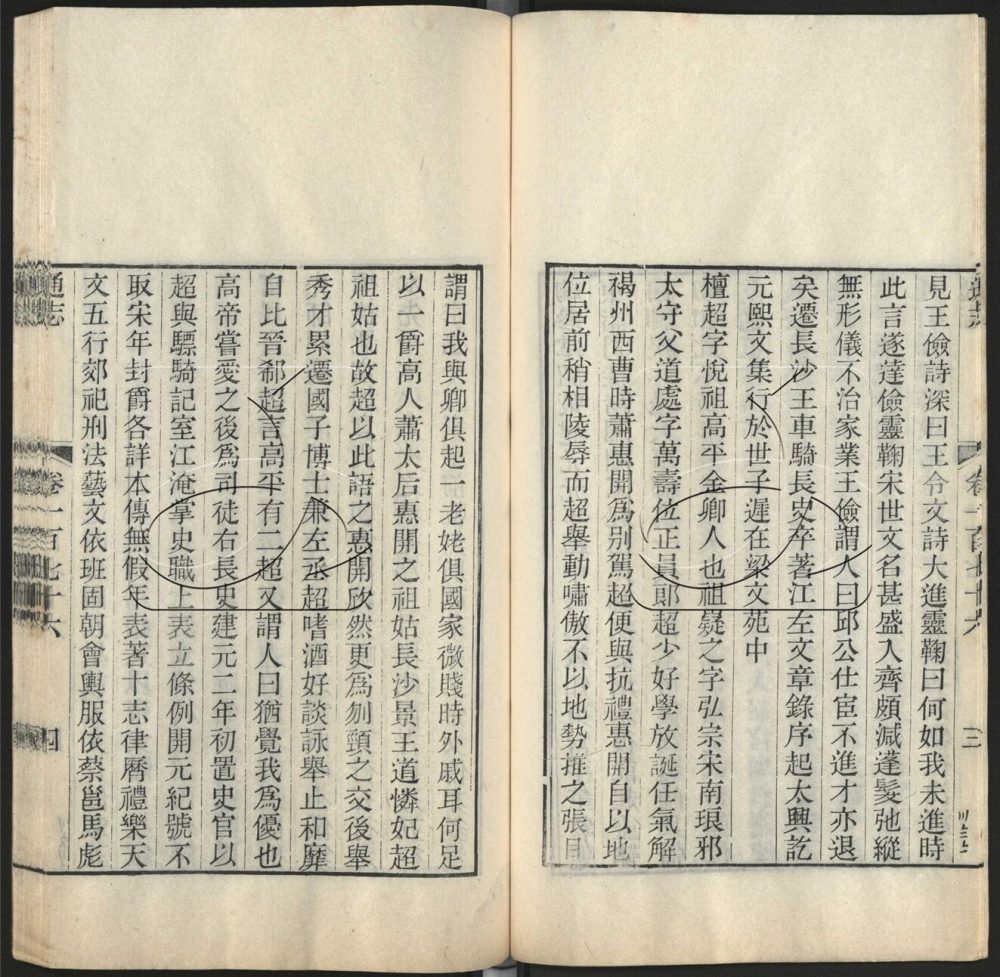 見王儉詩深曰王令文詩大進靈鞠曰何如我未進時
此言遂達儉靈鞠宋世文名甚盛入齊頗減蓬髮弛縱
無形儀不治家業王儉謂人曰邱公仕宦不進才亦退
矣遷長沙王車騎長史卒著江左文章錄序起太興訖
元熙文集行於世子遲在梁文苑中
檀超字悅祖高平金卿人也祖嶷之字弘宗宋南琅邪
太守父道處字萬壽位正員郎超少好學放誕任氣解
褐州西曹時蕭惠開為別駕超便與抗禮惠開自以地
位居前稍相陵辱而超舉動嘯傲不以地勢推之張目
卷一百七十六
三
謂曰我與卿俱起一老姥俱國家微賤時外戚耳何足
以一爵高人蕭太后惠開之祖姑長沙景王道憐妃超
祖姑也故超以此語之惠開欣然更為刎頸之交後舉
秀才累遷國子博士兼左丞超嗜酒好談詠舉止和靡
自比晉郗超言高平有二超又謂人曰猶覺我為優也
高帝嘗愛之後為司徒右長史建元二年初置史官以
超與驃騎記室江淹掌史職上表立條例開元紀號不
取宋年封爵各詳本傳無假年表著十志律曆禮樂天
文五行郊祀刑法藝文依班固朝會輿服依蔡邕馬彪
通志
卷一百七十六
四